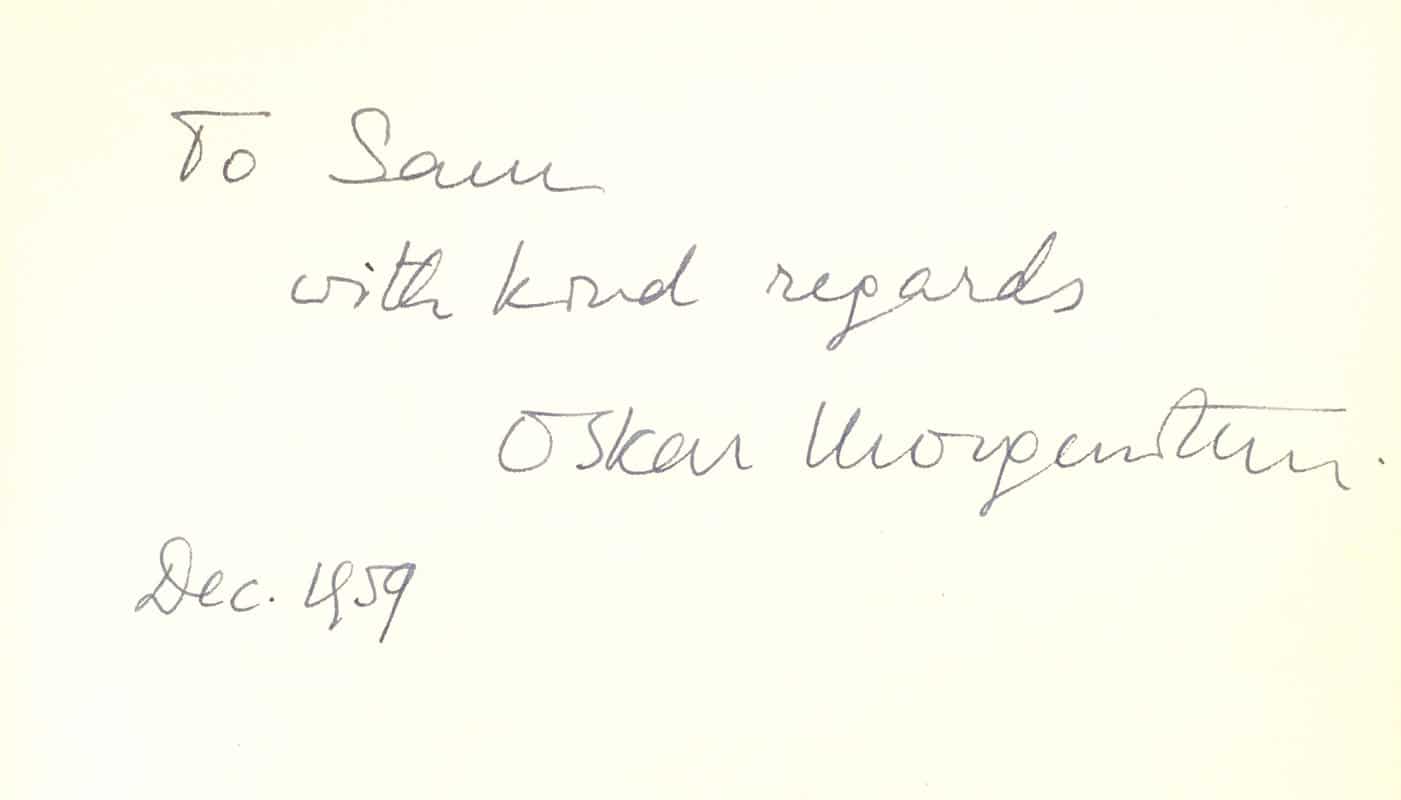 To Sam
with kind regards
Oskar Morgenstern.
Dec. 1959